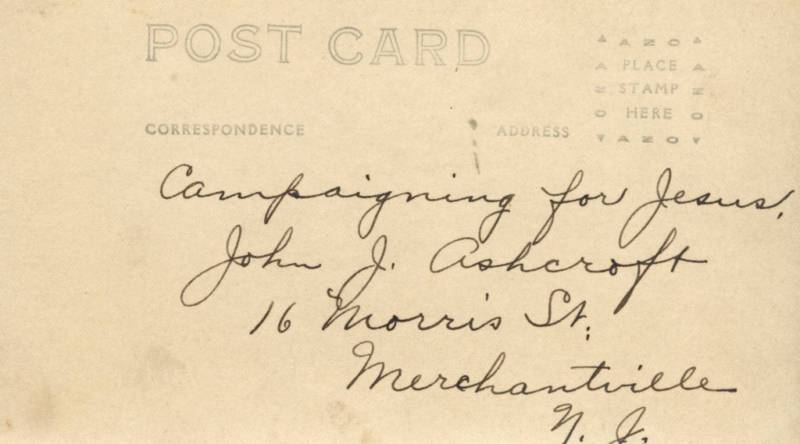 POST CARD
CORRESPONDENCE
ADDRESS
AZO
PLACE
STAMP
HERE
AZO
AZO
AZO
Campaigning for Jesus.
John J. Ashcroft
16 Morris St.
Merchantville
N. J.